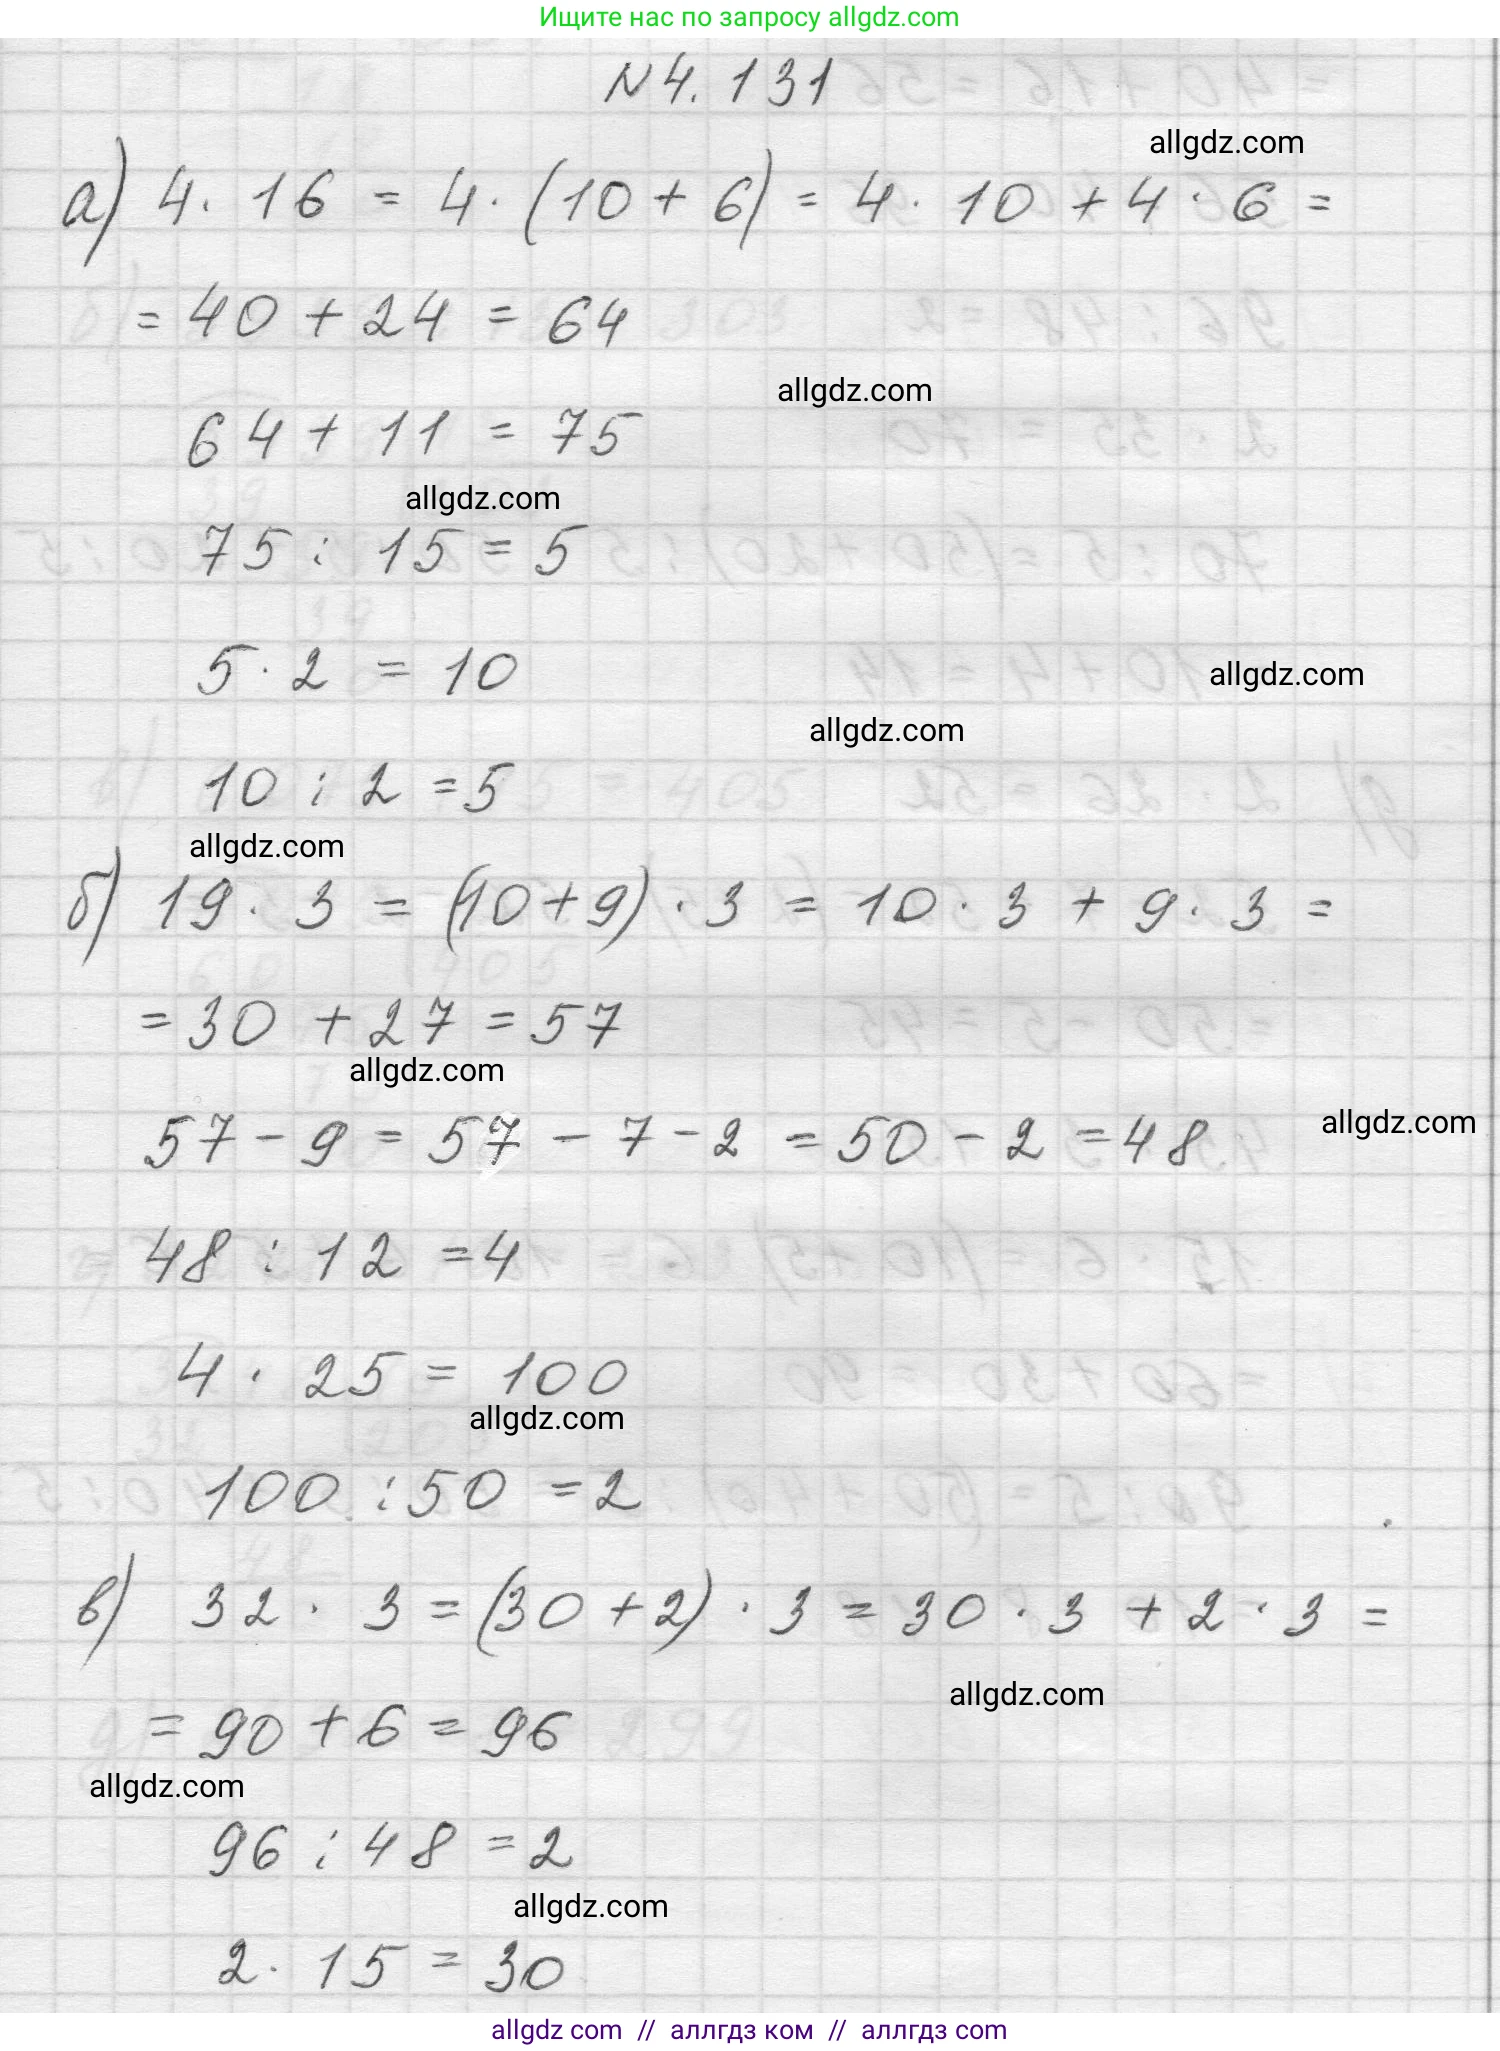 Ищите нас по запросу allgdz.com
N 4.131
allgdz.com
а) 4 · 16 = 4 · (10 + 6) = 4 · 10 + 4 · 6 =
= 40 + 24 = 64
allgdz.com
64 + 11 = 75
allgdz.com
75 : 15 = 5
5 · 2 = 10
allgdz.com
allgdz.com
10 : 2 = 5
allgdz.com
б) 19 · 3 = (10 + 9) · 3 = 10 · 3 + 9 · 3 =
= 30 + 27 = 57
allgdz.com
57 - 9 = 57 - 7 - 2 = 50 - 2 = 48
allgdz.com
48 : 12 = 4
4 · 25 = 100
allgdz.com
100 : 50 = 2
в) 32 · 3 = (30 + 2) · 3 = 30 · 3 + 2 · 3 =
allgdz.com
= 90 + 6 = 96
allgdz.com
96 : 48 = 2
allgdz.com
2 · 15 = 30
allgdz com // аллгдз ком // аллгдз com